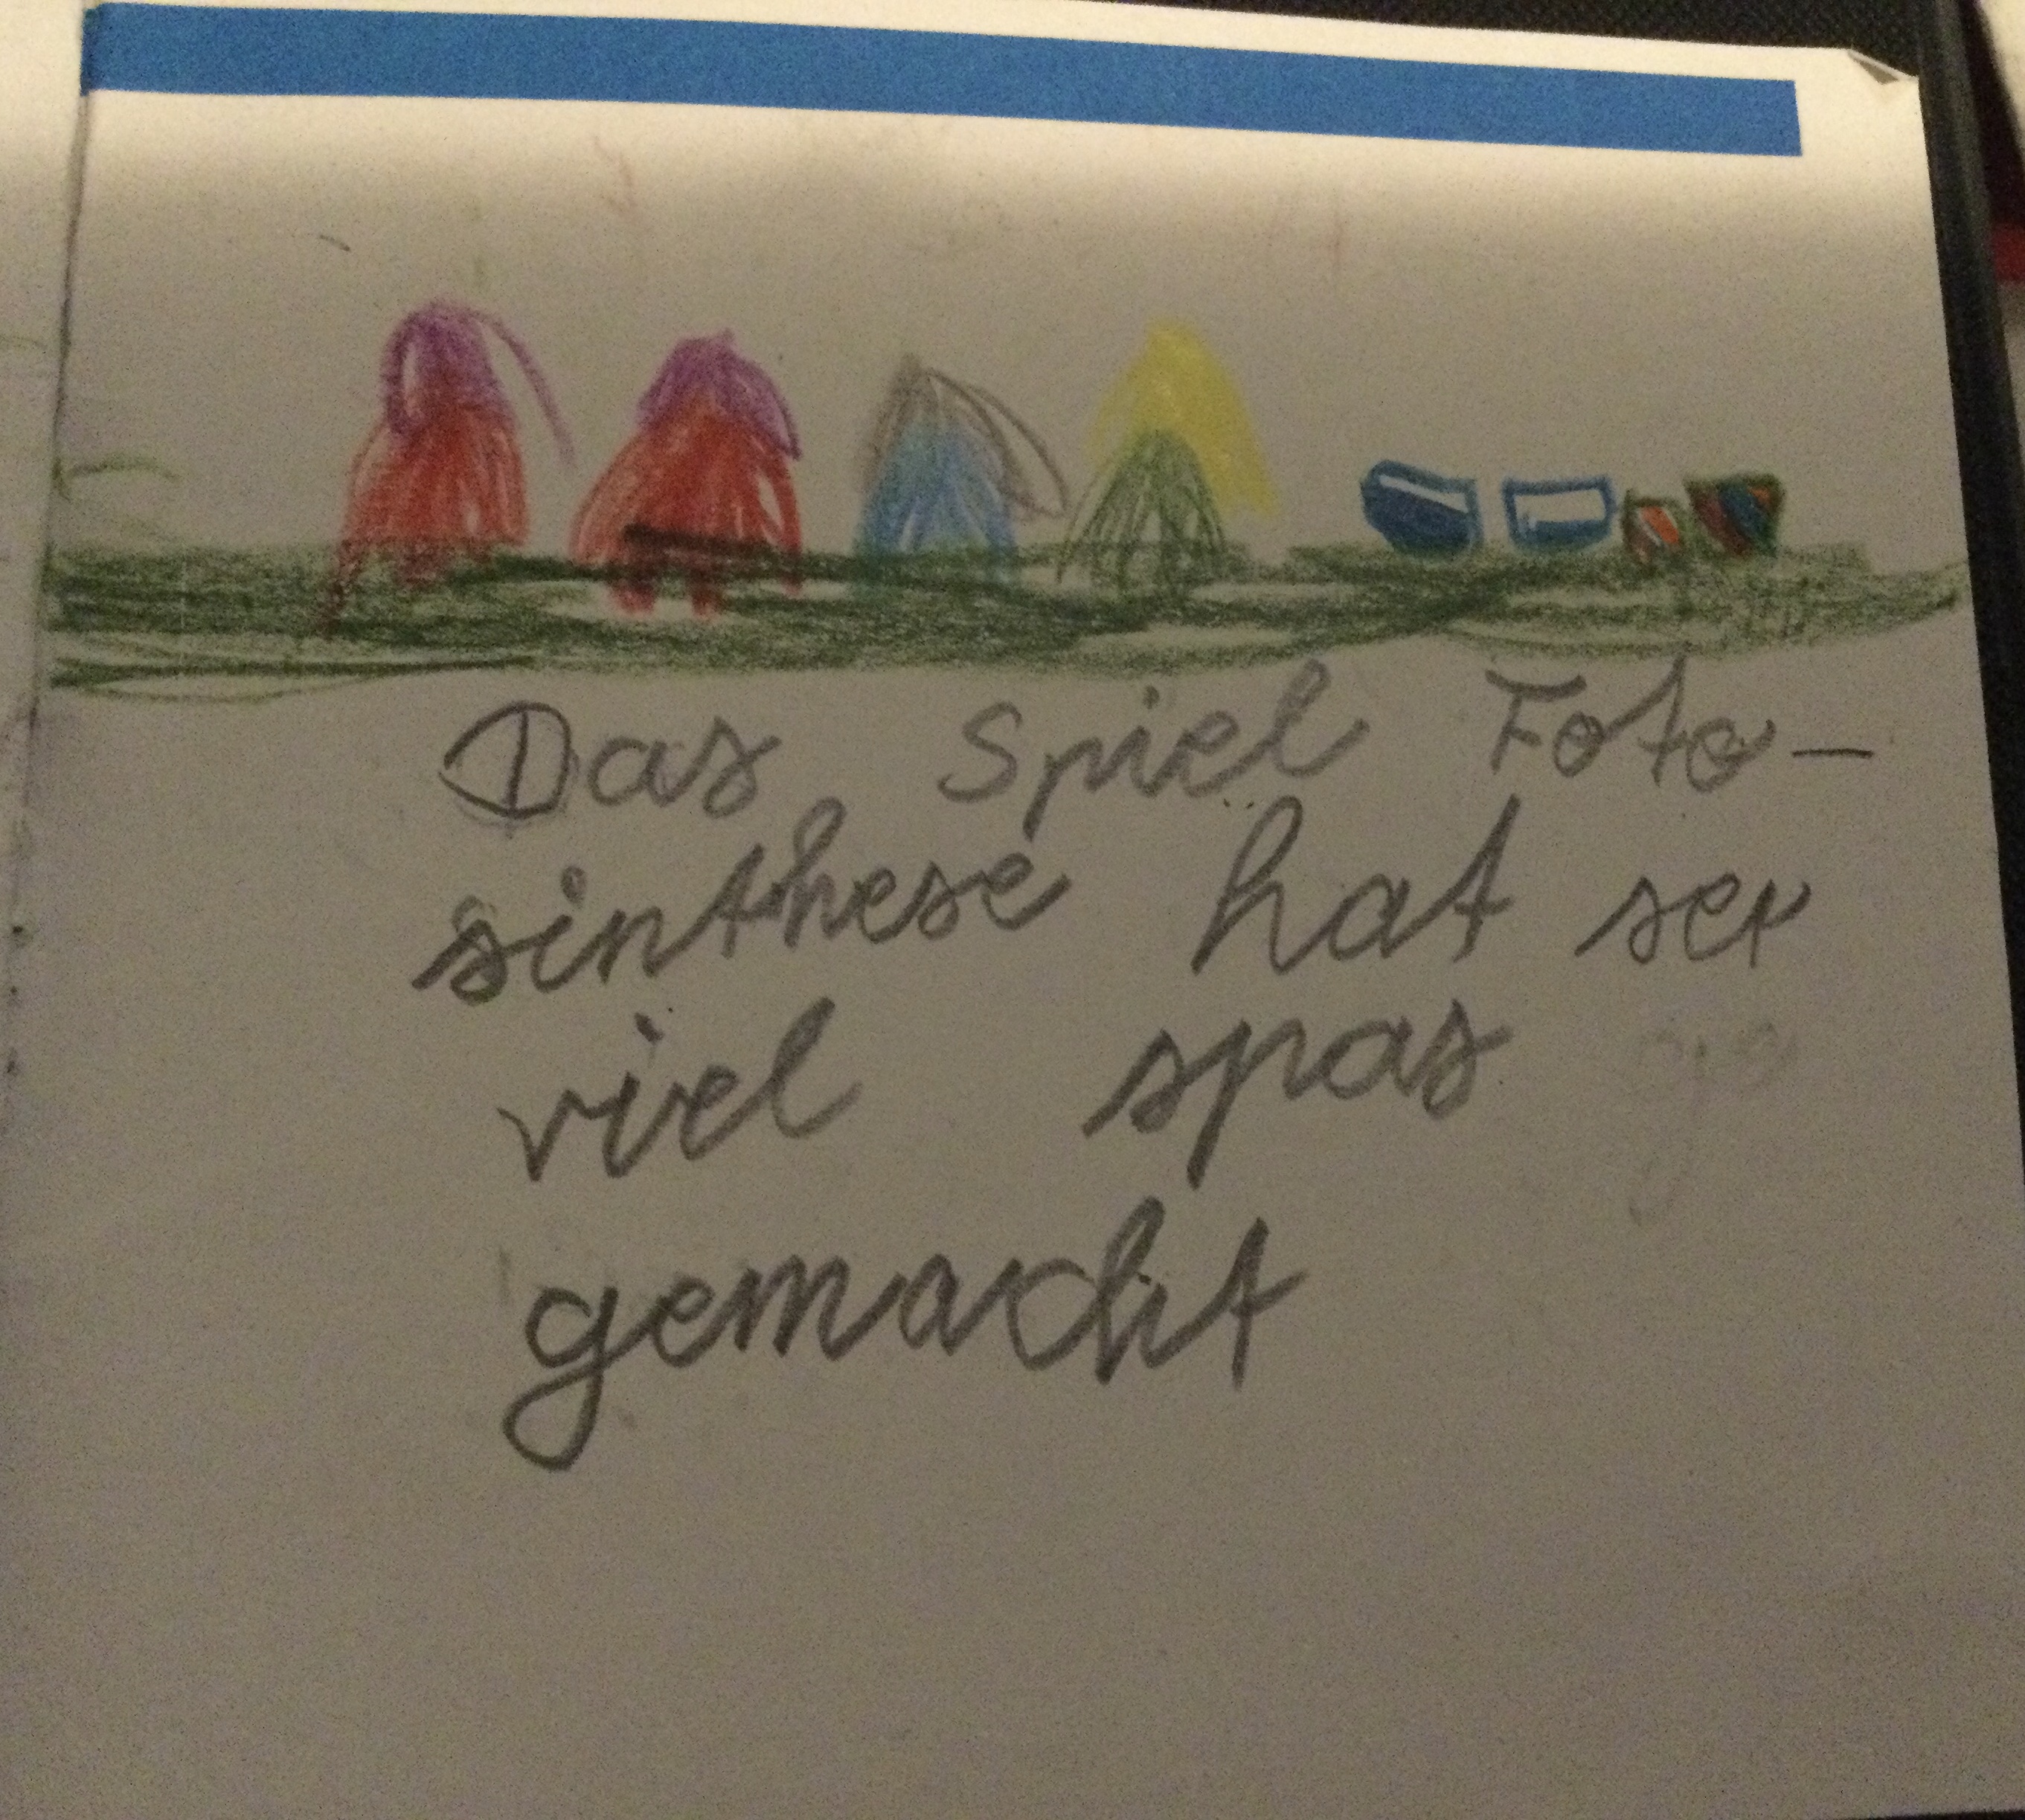 Das Spiel Foto-
sinthese hat ser
viel spas
gemacht